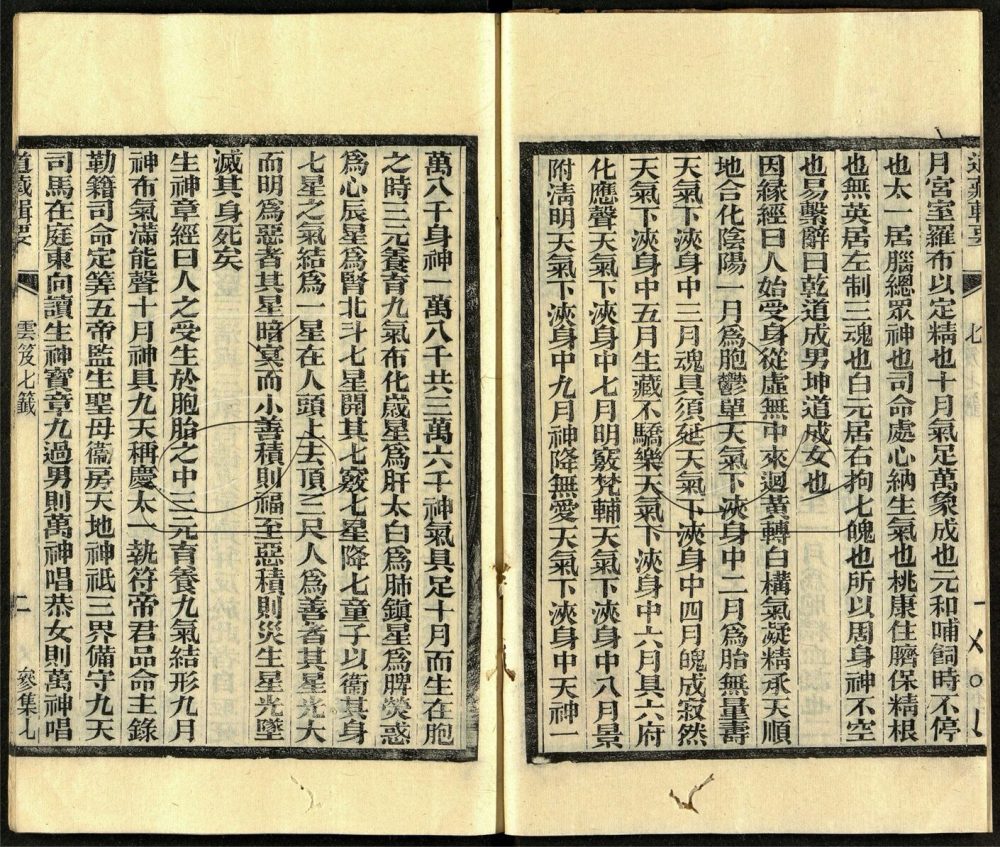 月宮室羅布以定精也十月氣足萬象成也元和哺飼時不停
也太一居腦總眾神也司命處心納生氣也桃康住臍保精根
也無英居左制三魂也白元居右拘七魄也所以周身神不空
也易繫辭曰乾道成男坤道成女也
因緣經曰人始受身從虛無中來迴黃轉白構氣凝精承天順
地合化陰陽一月為胞鬱單天氣下浹身中二月為胎無量壽
天氣下浹身中三月魂具須延天氣下浹身中四月魄成寂然
天氣下浹身中五月生藏不驕樂天氣下浹身中六月具六府
化應聲天氣下浹身中七月明竅梵輔天氣下浹身中八月景
附清明天氣下浹身中九月神降無愛天氣下浹身中天神一
萬八千身神一萬八千共三萬六千神氣具足十月而生在胞
之時三元養育九氣布化歲星為肝太白為肺鎮星為脾熒惑
為心辰星為腎北斗七星開其七竅七星降七童子以衞其身
七星之氣結為一星在人頭上去頂三尺人為善者其星光大
而明為惡者其星暗冥而小善積則福至惡積則災生星光墜
滅其身死矣
生神章經曰人之受生於胞胎之中三元育養九氣結形九月
神布氣滿能聲十月神具九天稱慶太一執符帝君品命主錄
勒籍司命定筭五帝監生聖母衞房天地神祇三界備守九天
司馬在庭東向讀生神寶章九過男則萬神唱恭女則萬神唱
道藏輯要
雲笈七籤
二
參集七